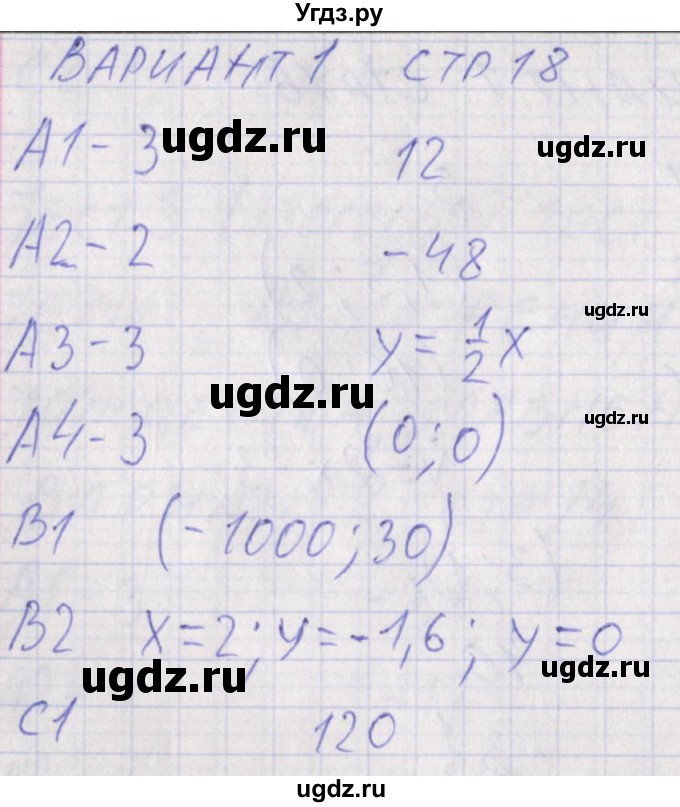 Угдз.ру
ВАРИАНТ 1 СТР 18
А1 - 3 ugdz.ru 12 ugdz.ru
А2 - 2 - 48
ugdz.ru
А3 - 3 y = 1/2 x
ugdz.ru
ugdz.ru
А4 - 3 (0; 0)
В1 (-1000; 30)
В2 x = 2; y = -1,6; y = 0
ugdz.ru ugdz.ru
С1 120
ugdz.ru